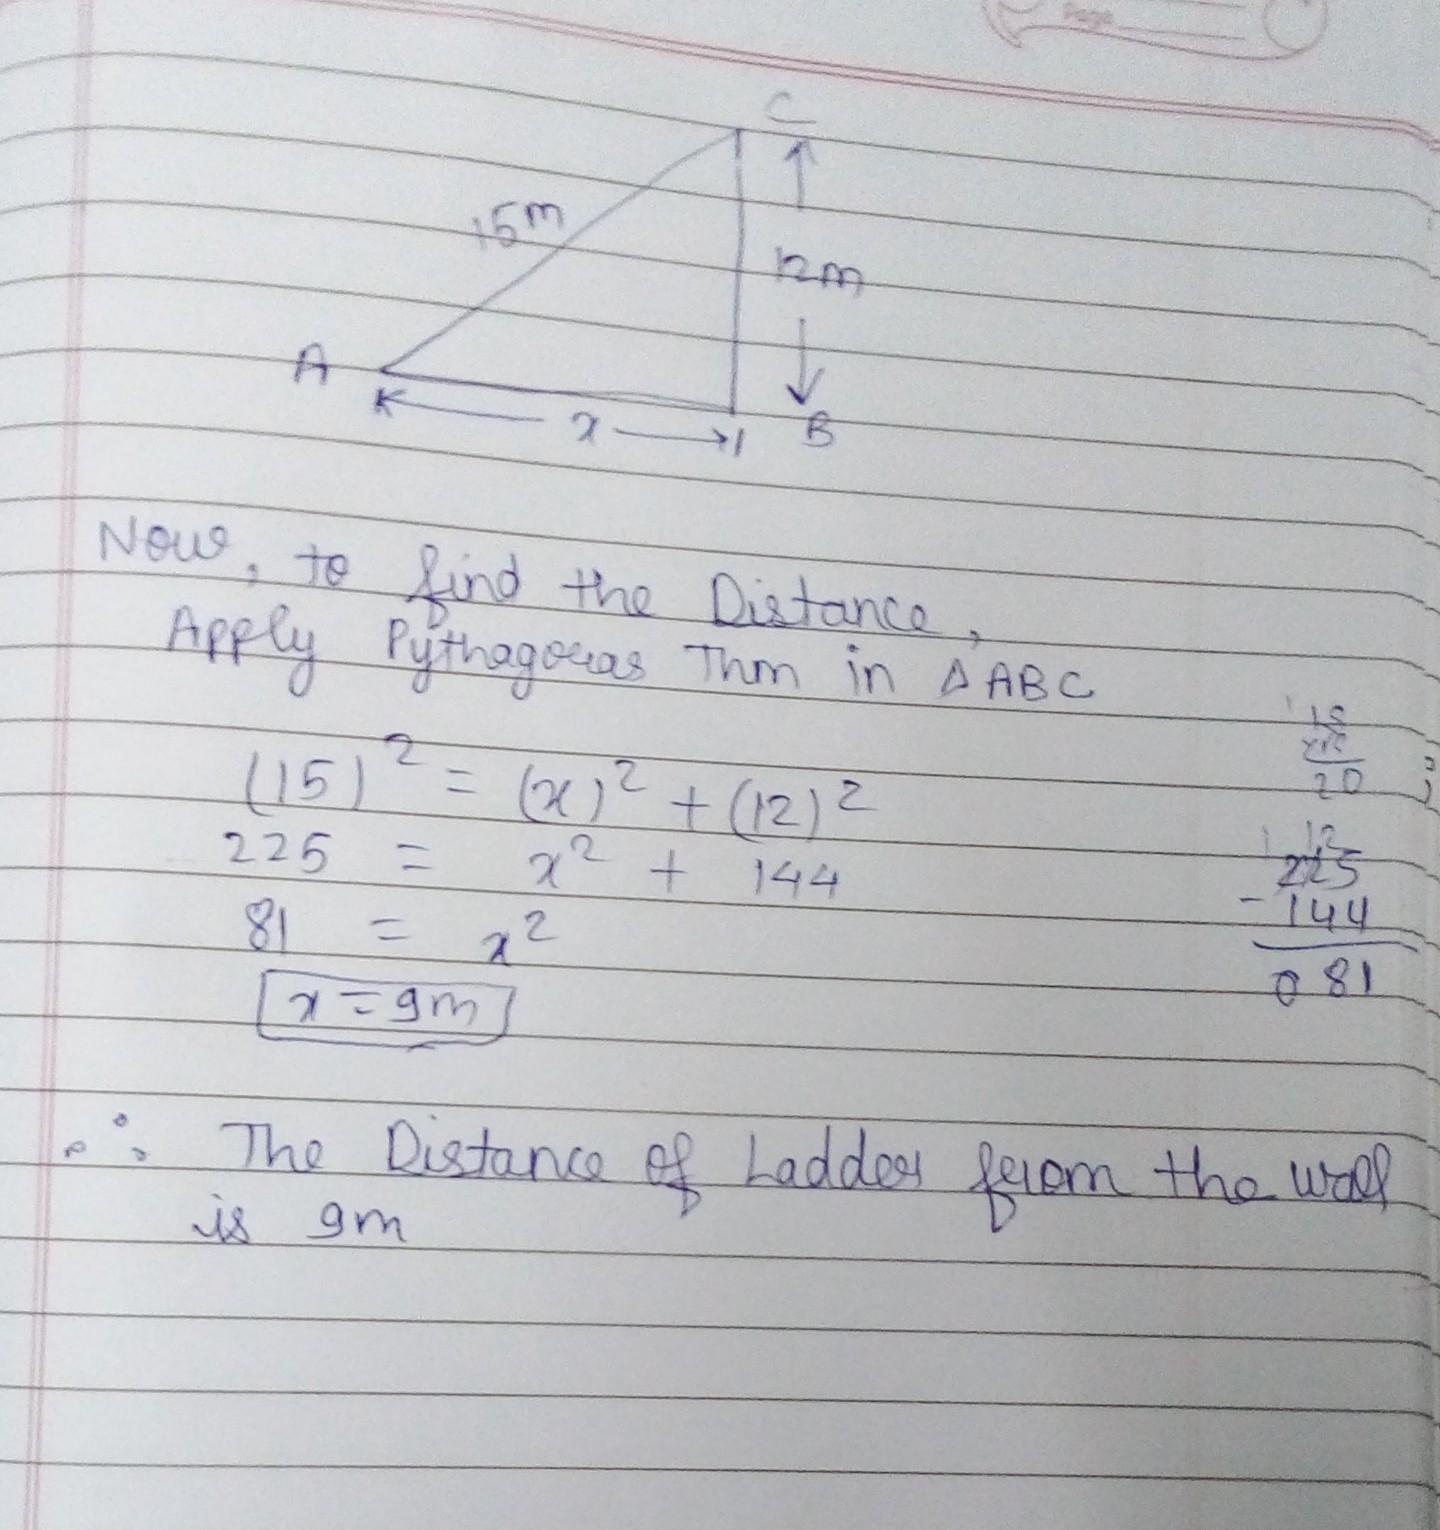 Page
C
15m
12m
A
x
B
Now, to find the Distance,
Apply Pythagoras Thm in △ABC
(15)² = (x)² + (12)²
225 = x² + 144
81 = x²
x = 9m
15
20
12
225
- 144
081
∴ The Distance of Ladder from the wall
is 9m